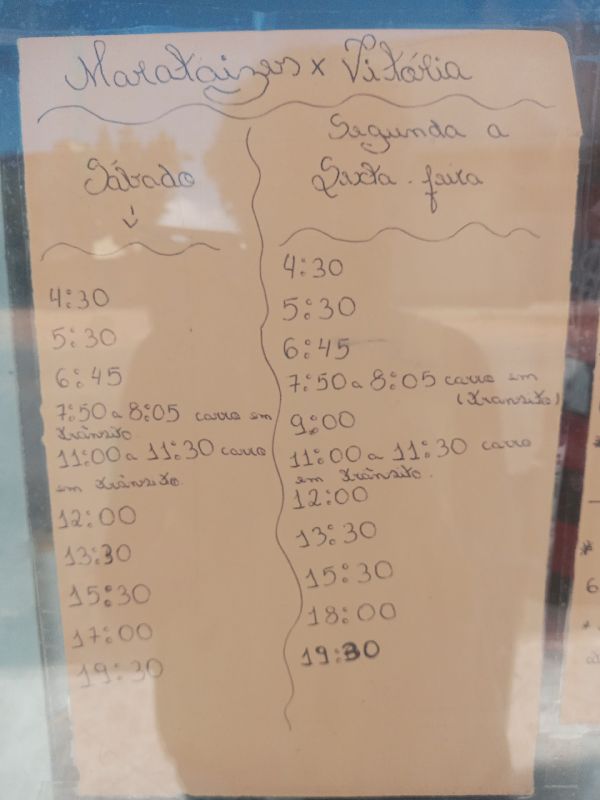 Marataizes x Vitória
Sábado
4:30
5:30
6:45
7:50 a 8:05 carro em
trânsito
11:00 a 11:30 carro
em trânsito.
12:00
13:30
15:30
17:00
19:30
Segunda a
Sexta-feira
4:30
5:30
6:45
7:50 a 8:05 carro em
(trânsito)
9:00
11:00 a 11:30 carro
em trânsito.
12:00
13:30
15:30
18:00
19:30
6